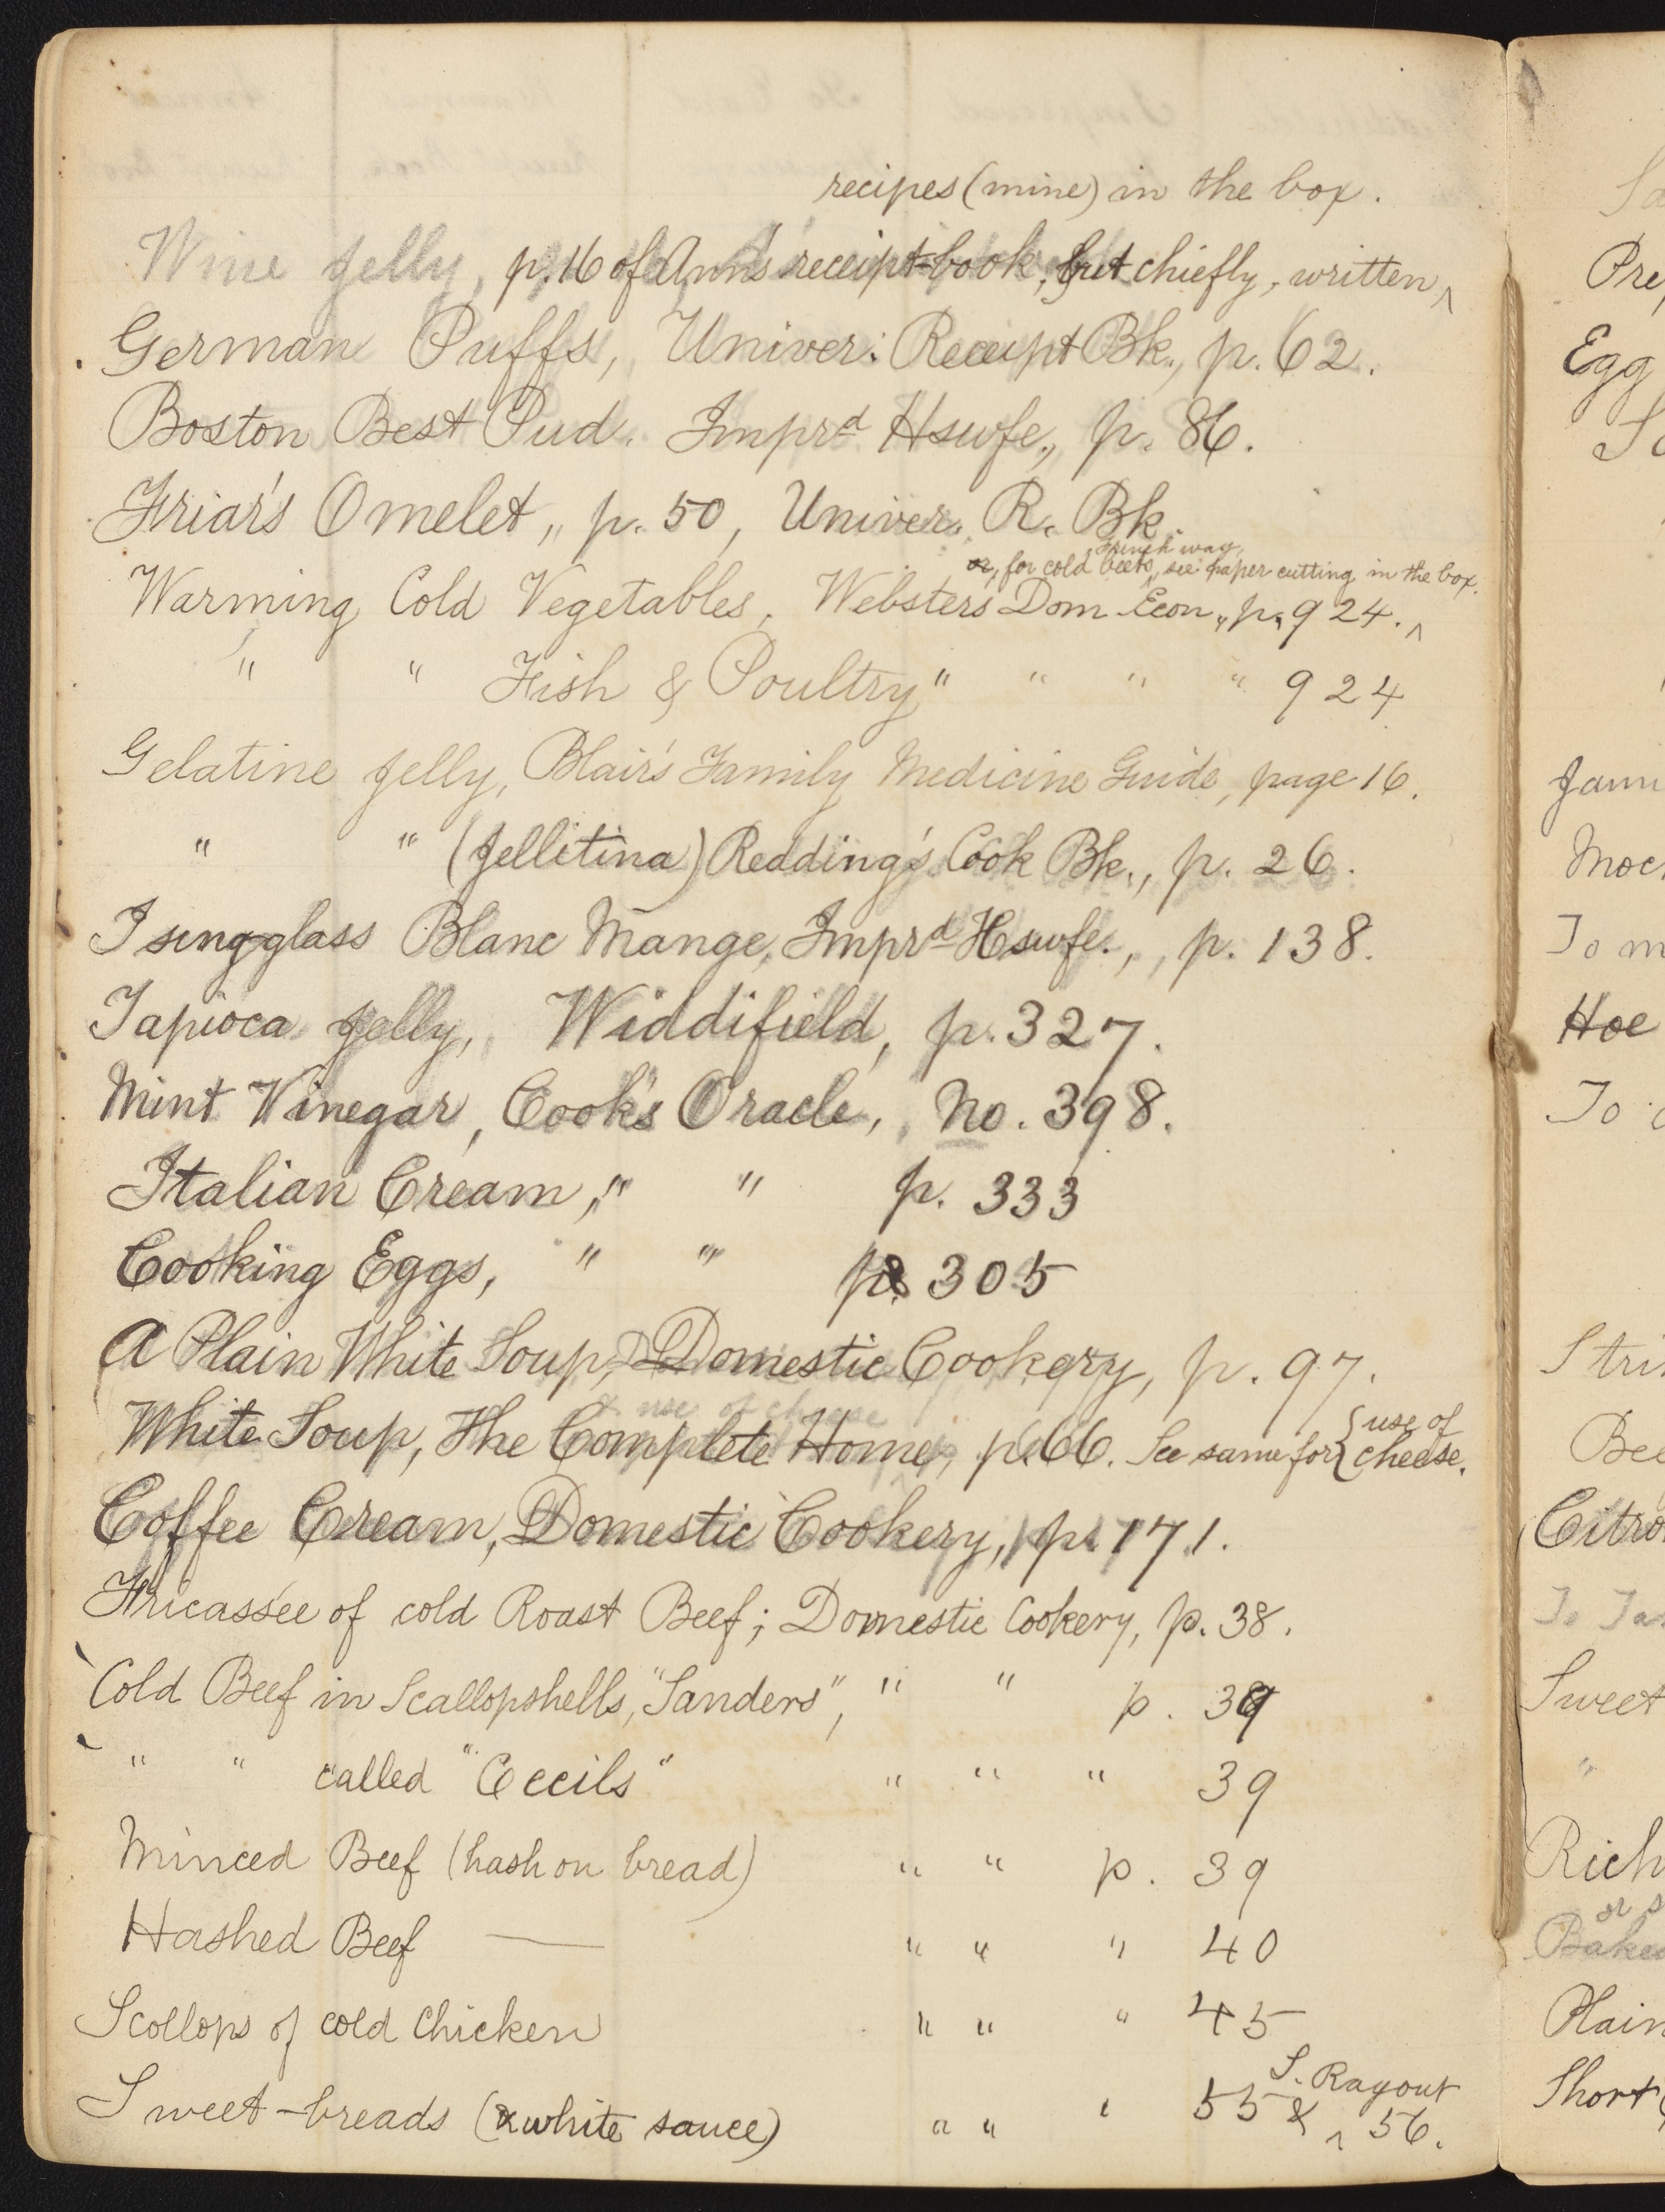 recipes (mine) in the box.
Wine Jelly, p. 16 of Ann's receipt-book, but chiefly, written ^
German Puffs, Univer. Receipt Bk., p. 62.
Boston Best Pud. Impr^d Hswfe., p. 86.
Friar's Omelet, p. 50, Univer. R. Bk.
French way,
or, for cold beets, see paper cutting in the box.
Warming Cold Vegetables, Websters Dom Econ., p. 924. ^
" " Fish & Poultry " " " " 924
Gelatine Jelly, Blair's Family Medicine Guide, page 16.
" " (Jellitina) Redding's Cook Bk., p. 26.
Isingglass Blanc Mange, Impr^d Hswfe., p. 138.
Tapioca Jelly, Widdifield, p. 327.
Mint Vinegar, Cook's Oracle, No. 398.
Italian Cream, " " p. 333
Cooking Eggs, " " p. 305
A Plain White Soup, Domestic Cookery, p. 97.
& use of cheese
White Soup, The Complete Home, p. 66. See same for { use of cheese.
Coffee Cream, Domestic Cookery, p. 171.
Fricassée of cold Roast Beef; Domestic Cookery, p. 38.
Cold Beef in Scallopshells, "Sanders", " " p. 39
" " called "Cecils" " " " 39
Minced Beef (hash on bread) " " p. 39
Hashed Beef — " " " 40
Scollops of cold Chicken " " " 45
S. Ragout
Sweet-breads (& white sauce) " " " 55 & ^ 56.
Pre
Egg
Moc
To m
Hoe
To
Stri
Bee
Citro
Sweet
"
Rich
or s
Baked
Plain
Short